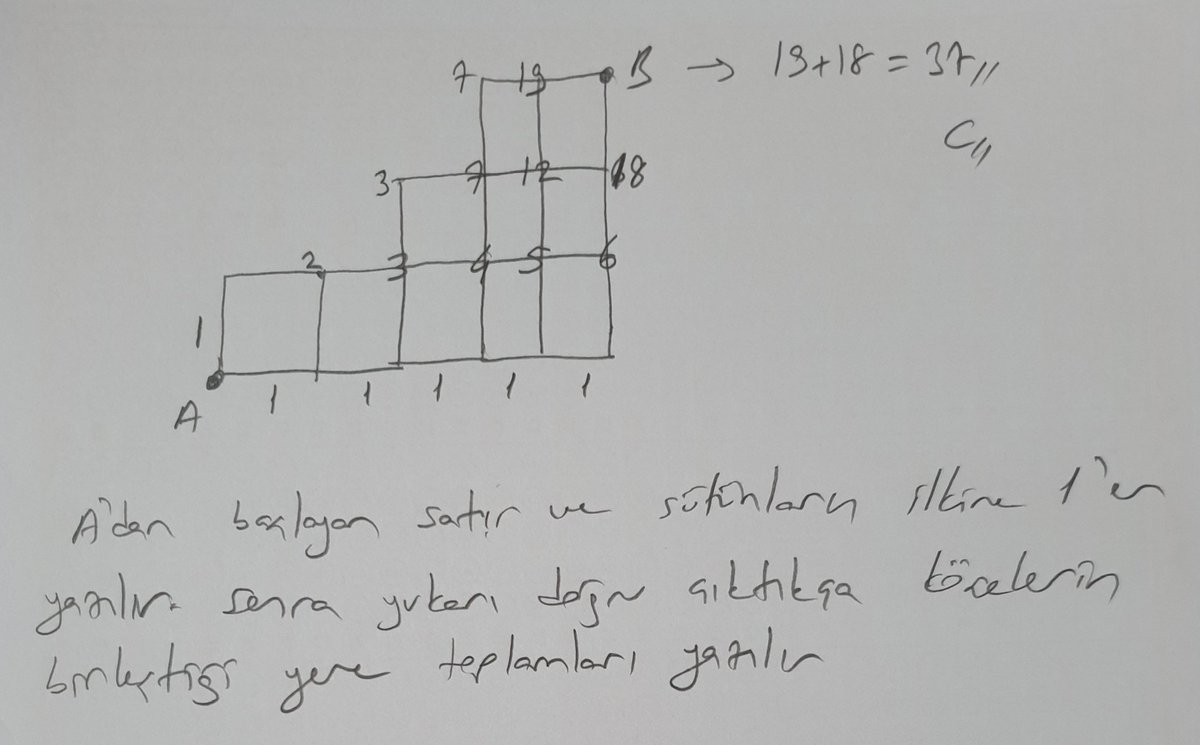 7 19 B → 19+18 = 37,,
C,,
3 7 12 18
2 3 4 5 6
1
A 1 1 1 1 1
A'dan başlayan satır ve sütunların ilkine 1'er
yazılır. Sonra yukarı doğru çıktıkça köşelerin
birleştiği yere toplamları yazılır